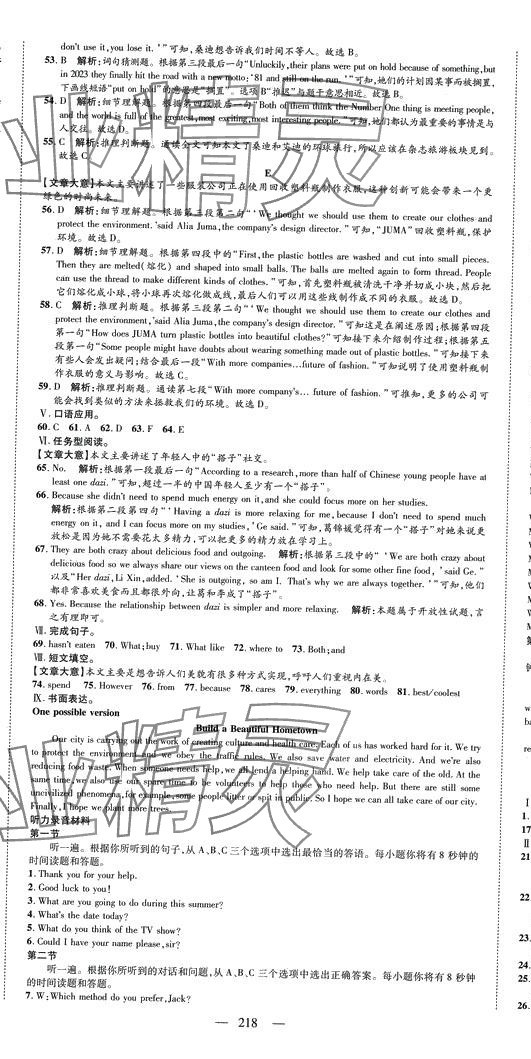 don't use it, you lose it. '"可知,桑迪想告诉我们时间不等人。故选 B。
53. B 解析:词句猜测题。根据第三段最后一句"Unluckily,their plans were put on hold because of something,but
in 2023 they finally hit the road with a new motto: '81 and still on the run. '"可知,她们的计划因某事而被搁置,
下画线短语"put on hold"的意思是"搁置"。选项 B"推迟"与题干意思相近。故选 B。
54. D 解析:细节理解题。根据第四段最后一句"Both of them think the Number One thing is meeting people,
and the world is full of the greatest,most exciting,most interesting people."可知,她们都认为最重要的事情是与
人交往。故选 D。
55. C 解析:推理判断题。通读全文可知本文了桑迪和艾迪的环球旅行,所以应该在杂志旅游板块见到。
故选 C。
E
【文章大意】本文主要讲述了一些服装公司正在使用回收塑料瓶制作衣服,这种创新可能会带来一个更
绿色的时尚未来。
56. D 解析:细节理解题。根据第三段第二句"'We thought we should use them to create our clothes and
protect the environment. 'said Alia Juma,the company's design director."可知,"JUMA"回收塑料瓶,保护
环境。故选 D。
57. D 解析:细节理解题。根据第四段中的"First,the plastic bottles are washed and cut into small pieces.
Then they are melted(熔化) and shaped into small balls. The balls are melted again to form thread. People
can use the thread to make different kinds of clothes."可知,首先塑料瓶被清洗干净并切成小块,然后把
它们熔化成小球,将小球再次熔化做成线,最后人们可以用这些线制作成不同的衣服。故选 D。
58. C 解析:推理判断题。根据第三段第二句"'We thought we should use them to create our clothes and
protect the environment. 'said Alia Juma, the company's design director."可知这是在阐述原因;根据第四段
第一句"How does JUMA turn plastic bottles into beautiful clothes?"可知接下来介绍制作过程;根据第五
段第一句"Some people might have doubts about wearing something made out of plastic bottles."可知接下来
有些人会发出疑问;结合最后一段"With more companies…future of fashion."可知说明了使用塑料瓶制
作衣服的意义与影响。故选 C。
59. D 解析:推理判断题。通读第七段"With more company's… future of fashion."可推知,更多的公司可
能会找到类似的方法来拯救我们的环境。故选 D。
Ⅴ. 口语应用。
60. C 61. A 62. D 63. F 64. E
Ⅵ. 任务型阅读。
【文章大意】本文主要讲述了年轻人中的"搭子"社交。
65. No. 解析:根据第一段最后一句"According to a research,more than half of Chinese young people have at
least one dazi."可知,超过一半的中国年轻人至少有一个"搭子"。
66. Because she didn't need to spend much energy on it,and she could focus more on her studies.
解析:根据第二段第四句"'Having a dazi is more relaxing for me,because I don't need to spend much
energy on it, and I can focus more on my studies, 'Ge said."可知,葛锦媛觉得有一个"搭子"对她来说更
放松是因为她不需要花太多精力,可以把更多的精力放在学习上。
67. They are both crazy about delicious food and outgoing. 解析:根据第三段中的"'We are both crazy about
delicious food so we always share our views on the canteen food and look for some other fine food, 'said Ge."
以及"Her dazi,Li Xin,added. 'She is outgoing, so am I. That's why we are always together. '"可知,他们
都非常喜欢美食而且都很外向,让葛和李成了"搭子"。
68. Yes. Because the relationship between dazi is simpler and more relaxing. 解析:本题属于开放性试题,言
之有理即可。
Ⅶ. 完成句子。
69. hasn't eaten 70. What;buy 71. What like 72. where to 73. Both;and
Ⅷ. 短文填空。
【文章大意】本文主要是想告诉人们美貌有很多种方式实现,呼吁人们重视内在美。
74. spend 75. However 76. from 77. because 78. cares 79. everything 80. words 81. best/coolest
Ⅸ. 书面表达。
One possible version
Build a Beautiful Hometown
Our city is carrying out the work of creating culture and health care. Each of us has worked hard for it. We try
to protect the environment and we obey the traffic rules. We also save water and electricity. And we're also
reducing food waste. When someone needs help,we all lend a helping hand. We help take care of the old. At the
same time,we also use our spare time to be volunteers to help those who need help. But there are still some
uncivilized phenomena,for example,some people litter or spit in public. So I hope we can all take care of our city.
Finally,I hope we plant more trees.
听力录音材料
第一节
听一遍。根据你所听到的句子,从 A、B、C 三个选项中选出最恰当的答语。每小题你将有 8 秒钟的
时间读题和答题。
1. Thank you for your help.
2. Good luck to you!
3. What are you going to do during this summer?
4. What's the date today?
5. What do you think of the TV show?
6. Could I have your name please,sir?
第二节
听一遍。根据你所听到的对话和问题,从 A、B、C 三个选项中选出正确答案。每小题你将有 8 秒钟
的时间读题和答题。
7. W:Which method do you prefer,Jack?
218